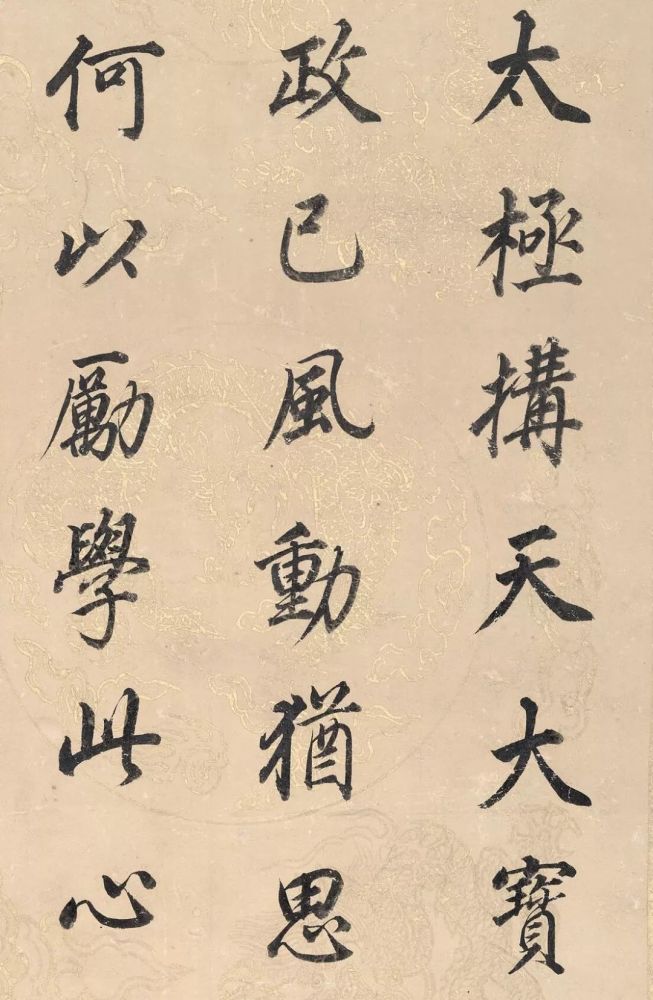 太極搆天大寶
政已風動猶思
何以勵學此心